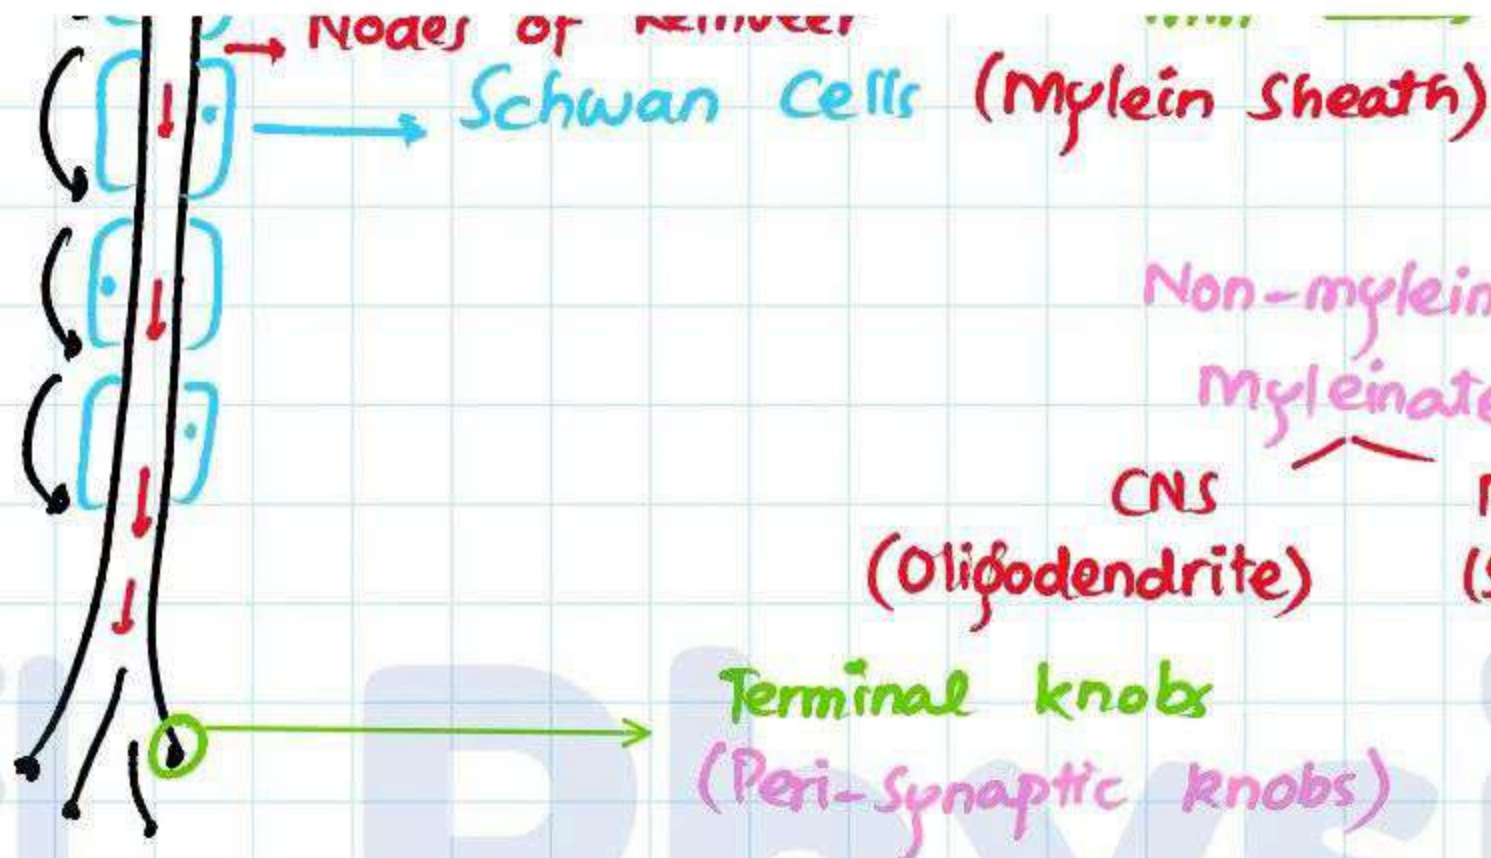 Nodes of
Schwan Cells (Mylein Sheath)
Non-mylein
Myleinate
CNS
(Oligodendrite)
Terminal knobs
(Peri-Synaptic knobs)